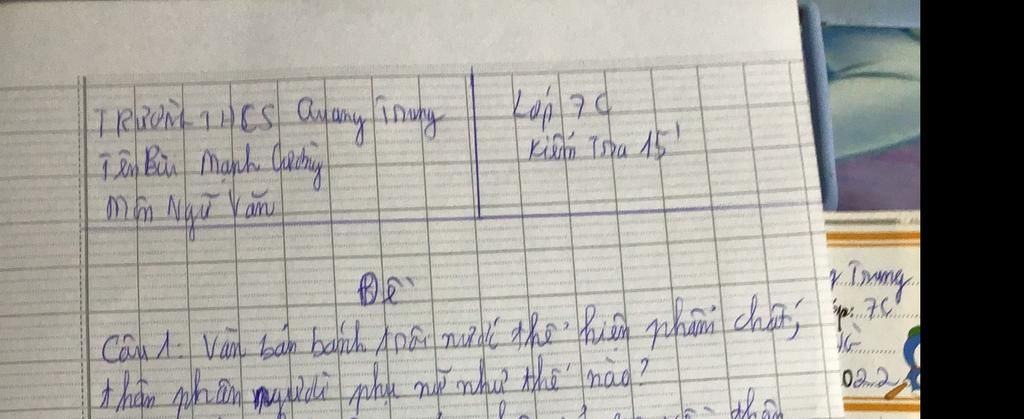 TRƯỜNG THCS Quang Trung
Tên Bùi Mạnh Cường
Môn Ngữ Văn
Lớp 7C
Kiểm Tra 15'
Đề
Câu 1: Văn bản bánh trôi nước thể hiện phẩm chất,
thân phận người phụ nữ như thế nào?
thân
Trung
7C
022